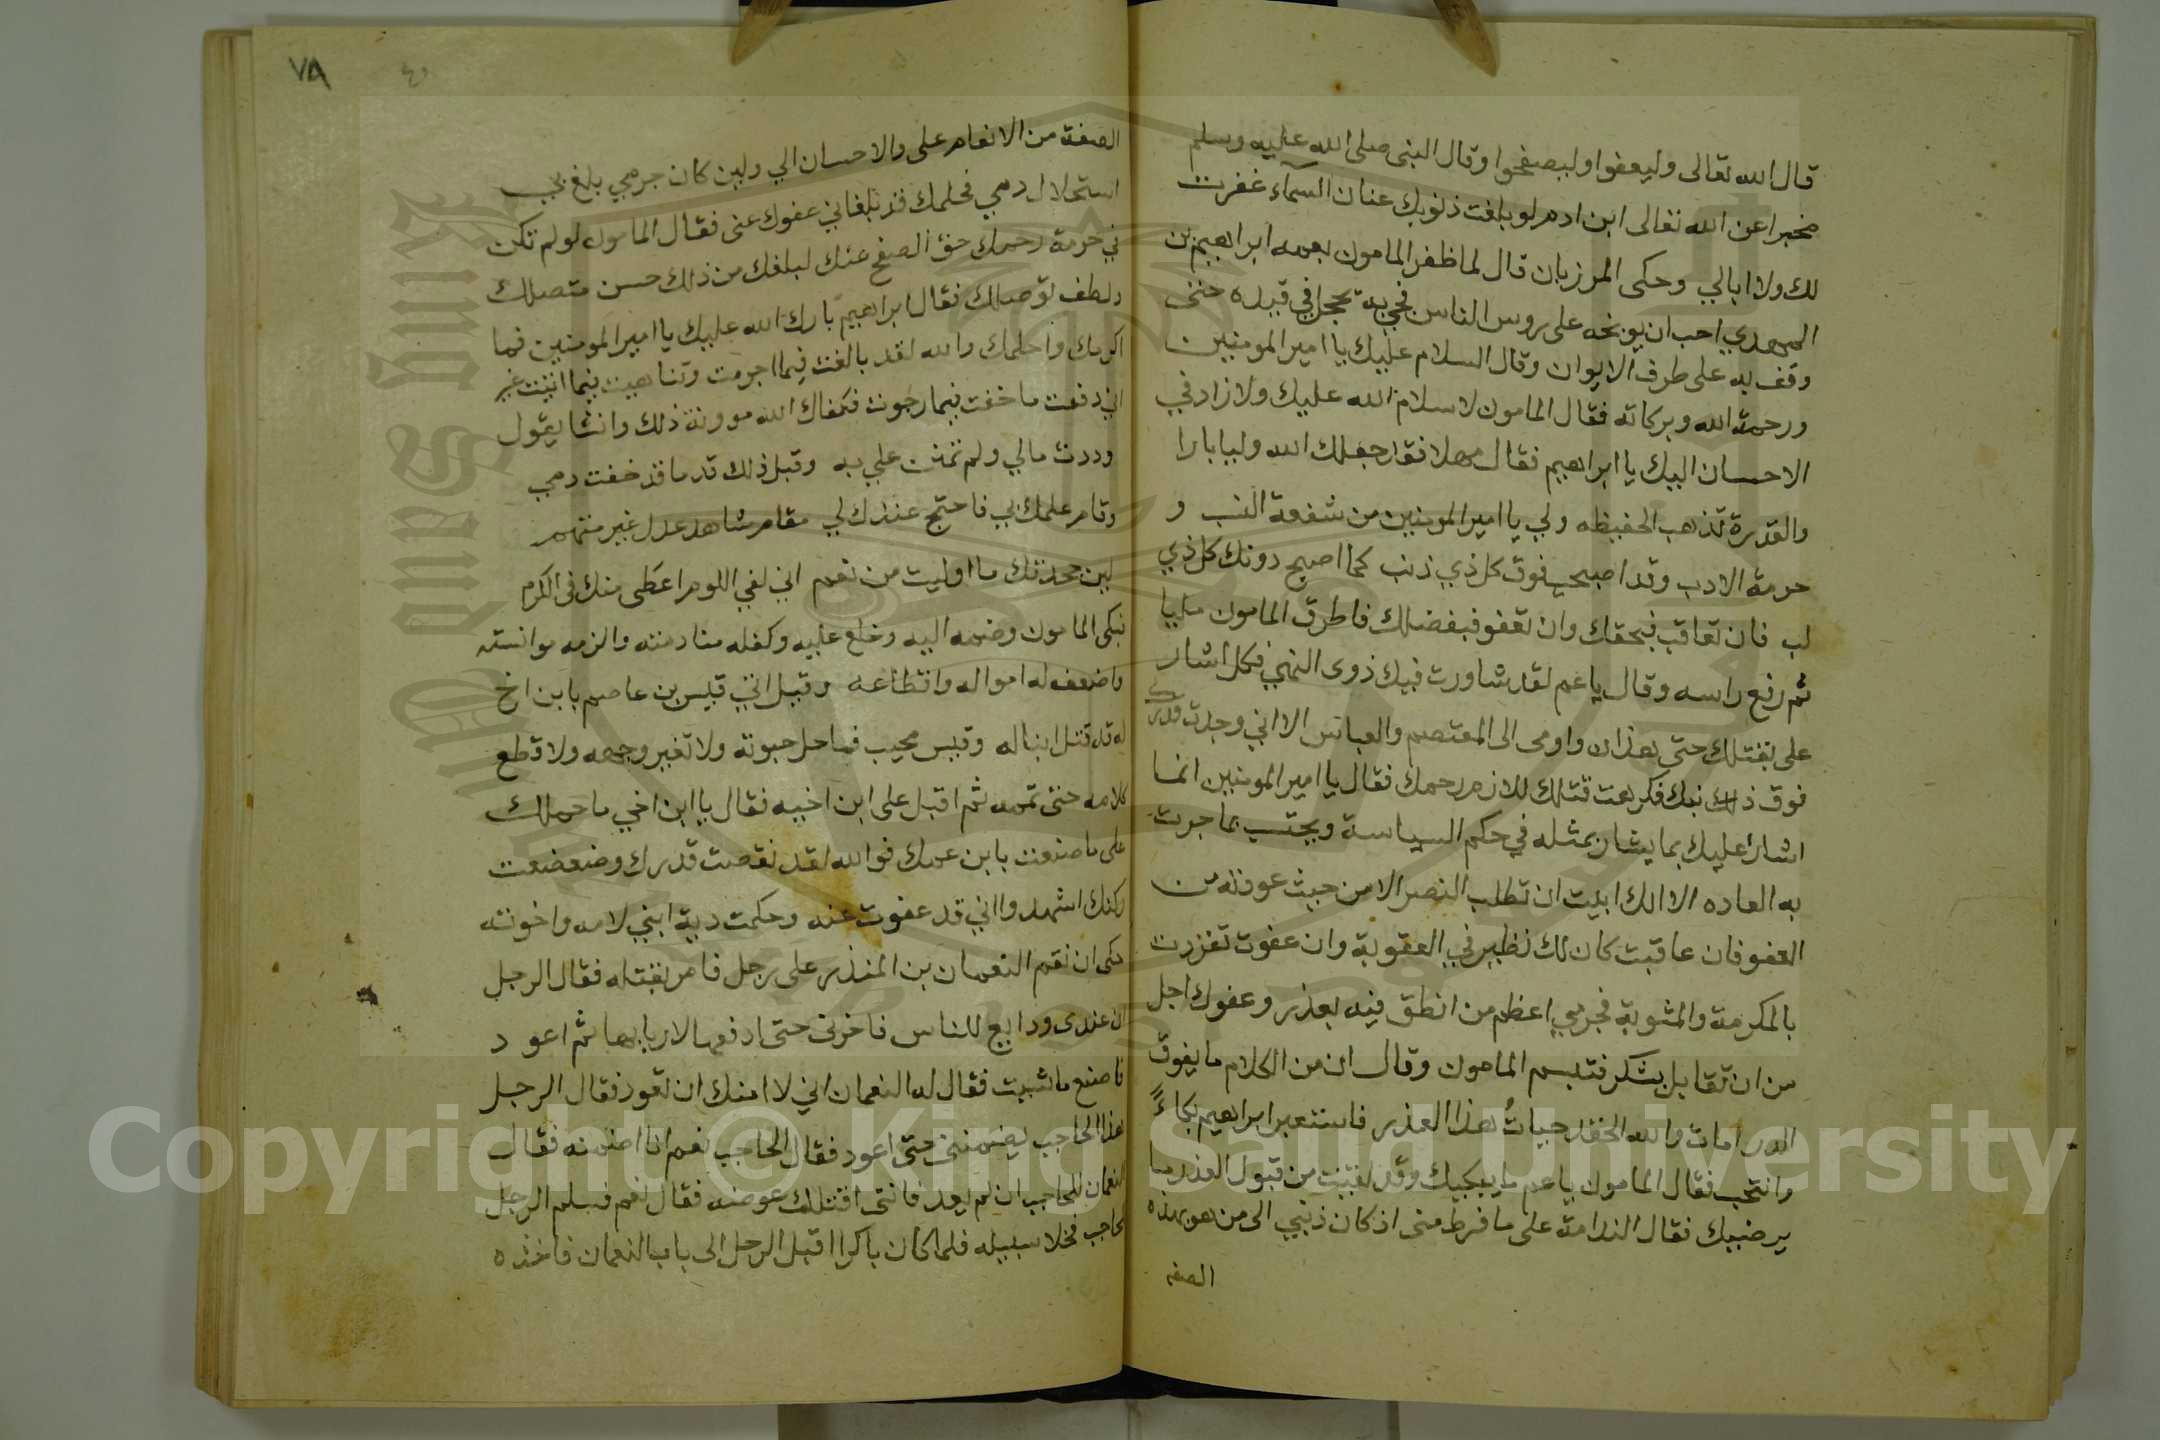 قال الله تعالى وليعفوا وليصفحوا وقال النبى صلى الله عليه وسلم
مخبرا عن الله تعالى ابن ادم لو بلغت ذنوبك عنان السمآء غفرت
لك ولا ابالي وحكى المرزبان قال لما ظفر المامون بعمه ابراهيم بن
المهدي احب ان يوبخه على روس الناس فجي به يحجل في قيده حتى
وقف به على طرف الايوان وقال السلام عليك يا امير المومنين
ورحمة الله وبركاته فقال المامون لا سلام الله عليك ولا زاد في
الاحسان اليك يا ابراهيم فقال مهلا فقد جعلك الله وليا بارا
والقدرة تذهب الحفيظه ولي يا امير المومنين من شفعة النسب و
حرمة الادب وقد اصبحت فوق كل ذي ذنب كما اصبح دونك كل ذي
لب فان تعاقب فبحقك وان تعفو فبفضلك فاطرق المامون مليا
ثم رفع راسه وقال يا عم لقد شاورت فيك ذوى النهي فكل اشار
على بقتلك حتى هذان واومى الى المعتصم والعباس الا اني وجدت قدرك
فوق ذنبك فكرهت قتلك للازم رحمك فقال يا امير المومنين انما
اشار عليك بما يشار بمثله في حكم السياسة وبحسب ما جرت
به العاده الا انك ابيت ان تطلب النصر الا من حيث عودته من
العفو فان عاقبت كان لك نظير في العقوبة وان عفوت تفردت
بالمكرمة والمثوبة فجرمي اعظم من انطق فيه بعذر وعفوك اجل
من ان تقابل بشكر فتبسم المامون وقال ان من الكلام ما يفوق
الدر امات والله الحقد حياتُ هذا العذر فاستعبر ابراهيم بكاءً
وانتحب فقال المامون يا عم ما يبكيك وقد لقيت من قبول العذر ما
يرضيك فقال الندامة على ما فرط منى اذ كان ذنبي الى من هو بهذه
الصفه
٧٨
الصفة من الانعام على والاحسان الي ولين كان جرمي بلغ بي
استحلال دمي فحلمك قد بلغاني عفوك عنى فقال المامون لو لم تكن
في حرمة رحمك حق الصفح عنك لبلغك من ذلك حسن متصلك
ولطف توصلك فقال ابراهيم بارك الله عليك يا امير المومنين فما
اكرمك واحلمك والله لقد بالغت فيما اجرمت وتناهيت فيما اتيت غير
اني دفعت ما خفت بما رجوت فكفاك الله موونة ذلك وانشا يقول
وددت مالي ولم تمنن علي به وقبل ذلك قد ما قد خفت دمي
وقام علمك بي فاحتج عندك لي مقام شاهد عدل غير متهم
لين جحدتك ما اوليت من نعم اني لفي اللوم اعطى منك فى الكرم
فبكى المامون وضمه اليه وخلع عليه وكفله منادمته والزمه موانسته
واضعف له امواله واقطاعه وقيل اتي قيس بن عاصم بابن اخ
له قد قتل ابنا له وقيس محتب فما حل حبوته ولا تغير وجهه ولا قطع
كلامه حتى تمه ثم اقبل على ابن اخيه فقال يا ابن اخي ما حملك
على ما صنعت بابن عمك فوالله لقد نقصت قدرك وضعضعت
ركنك اشهدوا اني قد عفوت عنه وحكمت دية ابني لامه واخوته
حكى ان نقم النعمان بن المنذر على رجل فامر بقتله فقال الرجل
ان عندى ودايع للناس فاخرنى حتى ادفعها لاربابها ثم اعود
فاصنع ما شيت فقال له النعمان اني لا امنك ان تعود فقال الرجل
هذا الحاجب يضمننى حتى اعود فقال الحاجب نعم انا اضمنه فقال
النعمان للحاجب ان لم يعد فانى اقتلك عوضه فقال نعم فسلم الرجل
لحاجب فخلا سبيله فلما كان باكرا اقبل الرجل الى باب النعمان فاخذه
Copyright © King Saud University